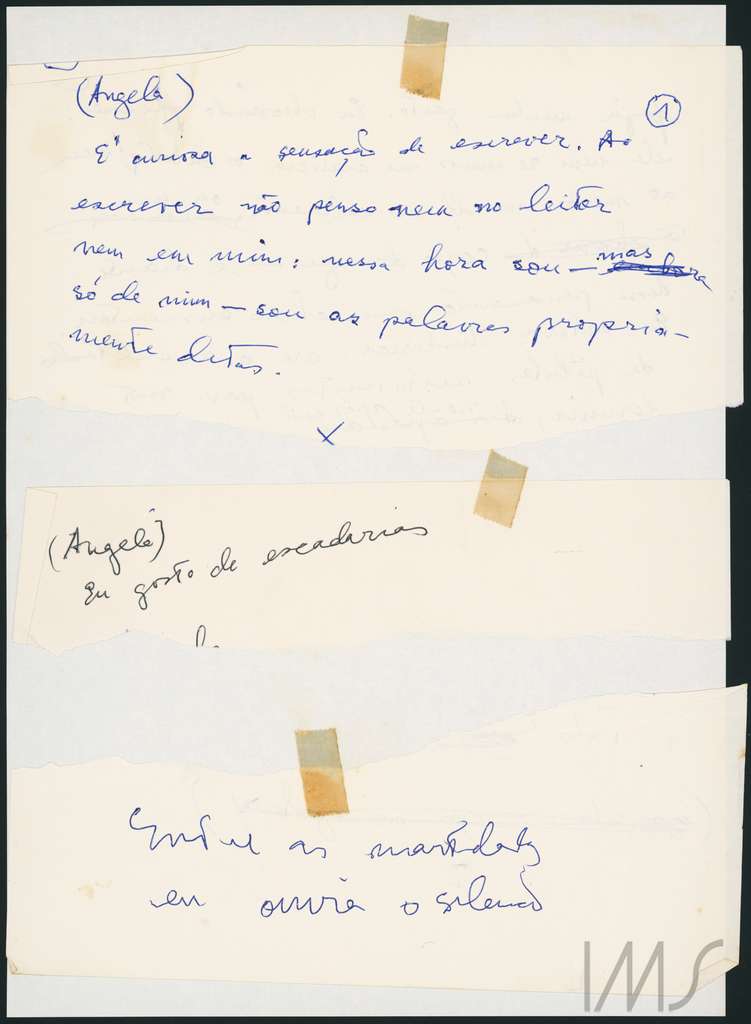 (Angela)
1
E' curiosa a sensação de escrever. Ao
escrever não penso nem no leitor
nem em mim: nessa hora sou — mas
só de mim — sou as palavras propria-
mente ditas.
X
(Angela)
Eu gosto de escadarias
Entre as marteladas
eu ouvia o silêncio
IMS